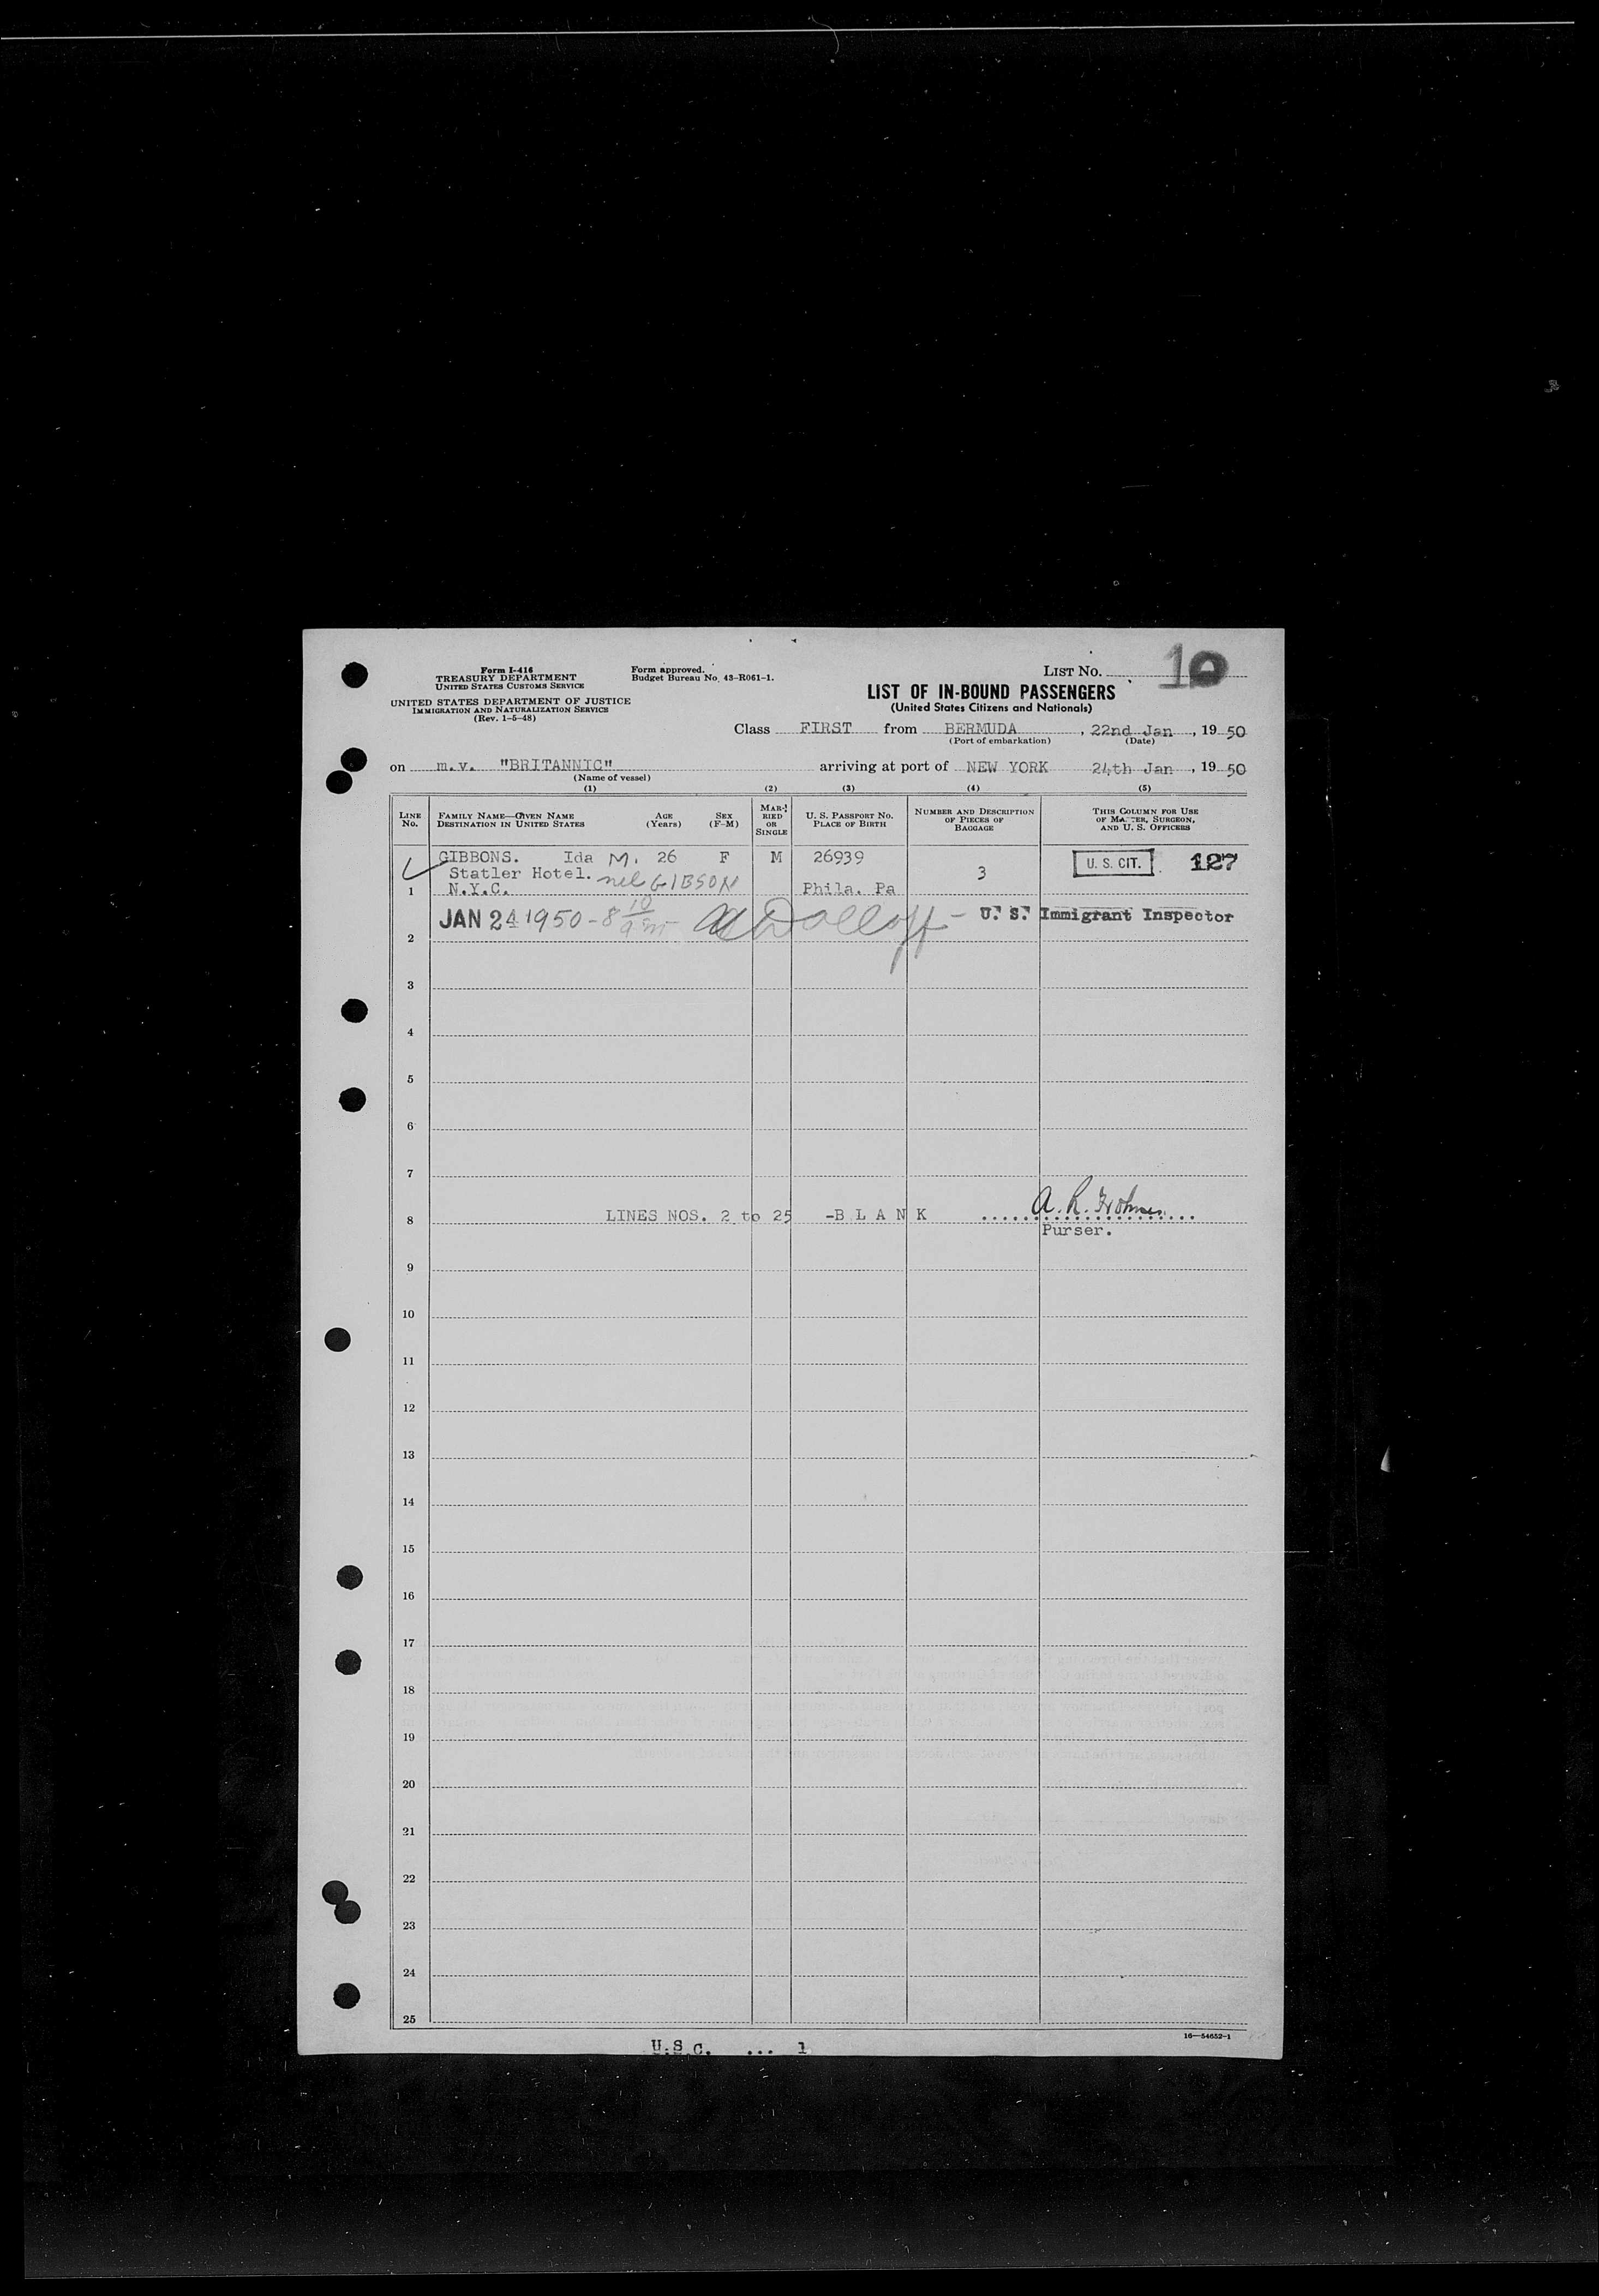 Form I-416
TREASURY DEPARTMENT
UNITED STATES CUSTOMS SERVICE
UNITED STATES DEPARTMENT OF JUSTICE
IMMIGRATION AND NATURALIZATION SERVICE
(Rev. 1-5-48)
Form approved.
Budget Bureau No. 43-R061-1.
LIST NO. 10
LIST OF IN-BOUND PASSENGERS
(United States Citizens and Nationals)
Class FIRST from BERMUDA, 22nd Jan, 1950
(Port of embarkation) (Date)
on m.v. "BRITANNIC" arriving at port of NEW YORK 24th Jan, 1950
(Name of vessel)
(1) (2) (3) (4) (5)
LINE NO.
FAMILY NAME—GIVEN NAME
DESTINATION IN UNITED STATES
AGE (Years)
SEX (F-M)
MARRIED OR SINGLE
U. S. PASSPORT NO.
PLACE OF BIRTH
NUMBER AND DESCRIPTION OF PIECES OF BAGGAGE
THIS COLUMN FOR USE OF MASTER, SURGEON, AND U. S. OFFICERS
GIBBONS. Ida M. 26 F M 26939 U. S. CIT. 127
Statler Hotel. nee GIBSON 3
1 N.Y.C. Phila. Pa
JAN 24 1950 - 8 10 am - U. S. Immigrant Inspector
2
3
4
5
6
7
8 LINES NOS. 2 to 25 -B L A N K ..................... A. R.
Purser.
9
10
11
12
13
14
15
16
17
18
19
20
21
22
23
24
25
16—54652-1
U.S.C. ... 1